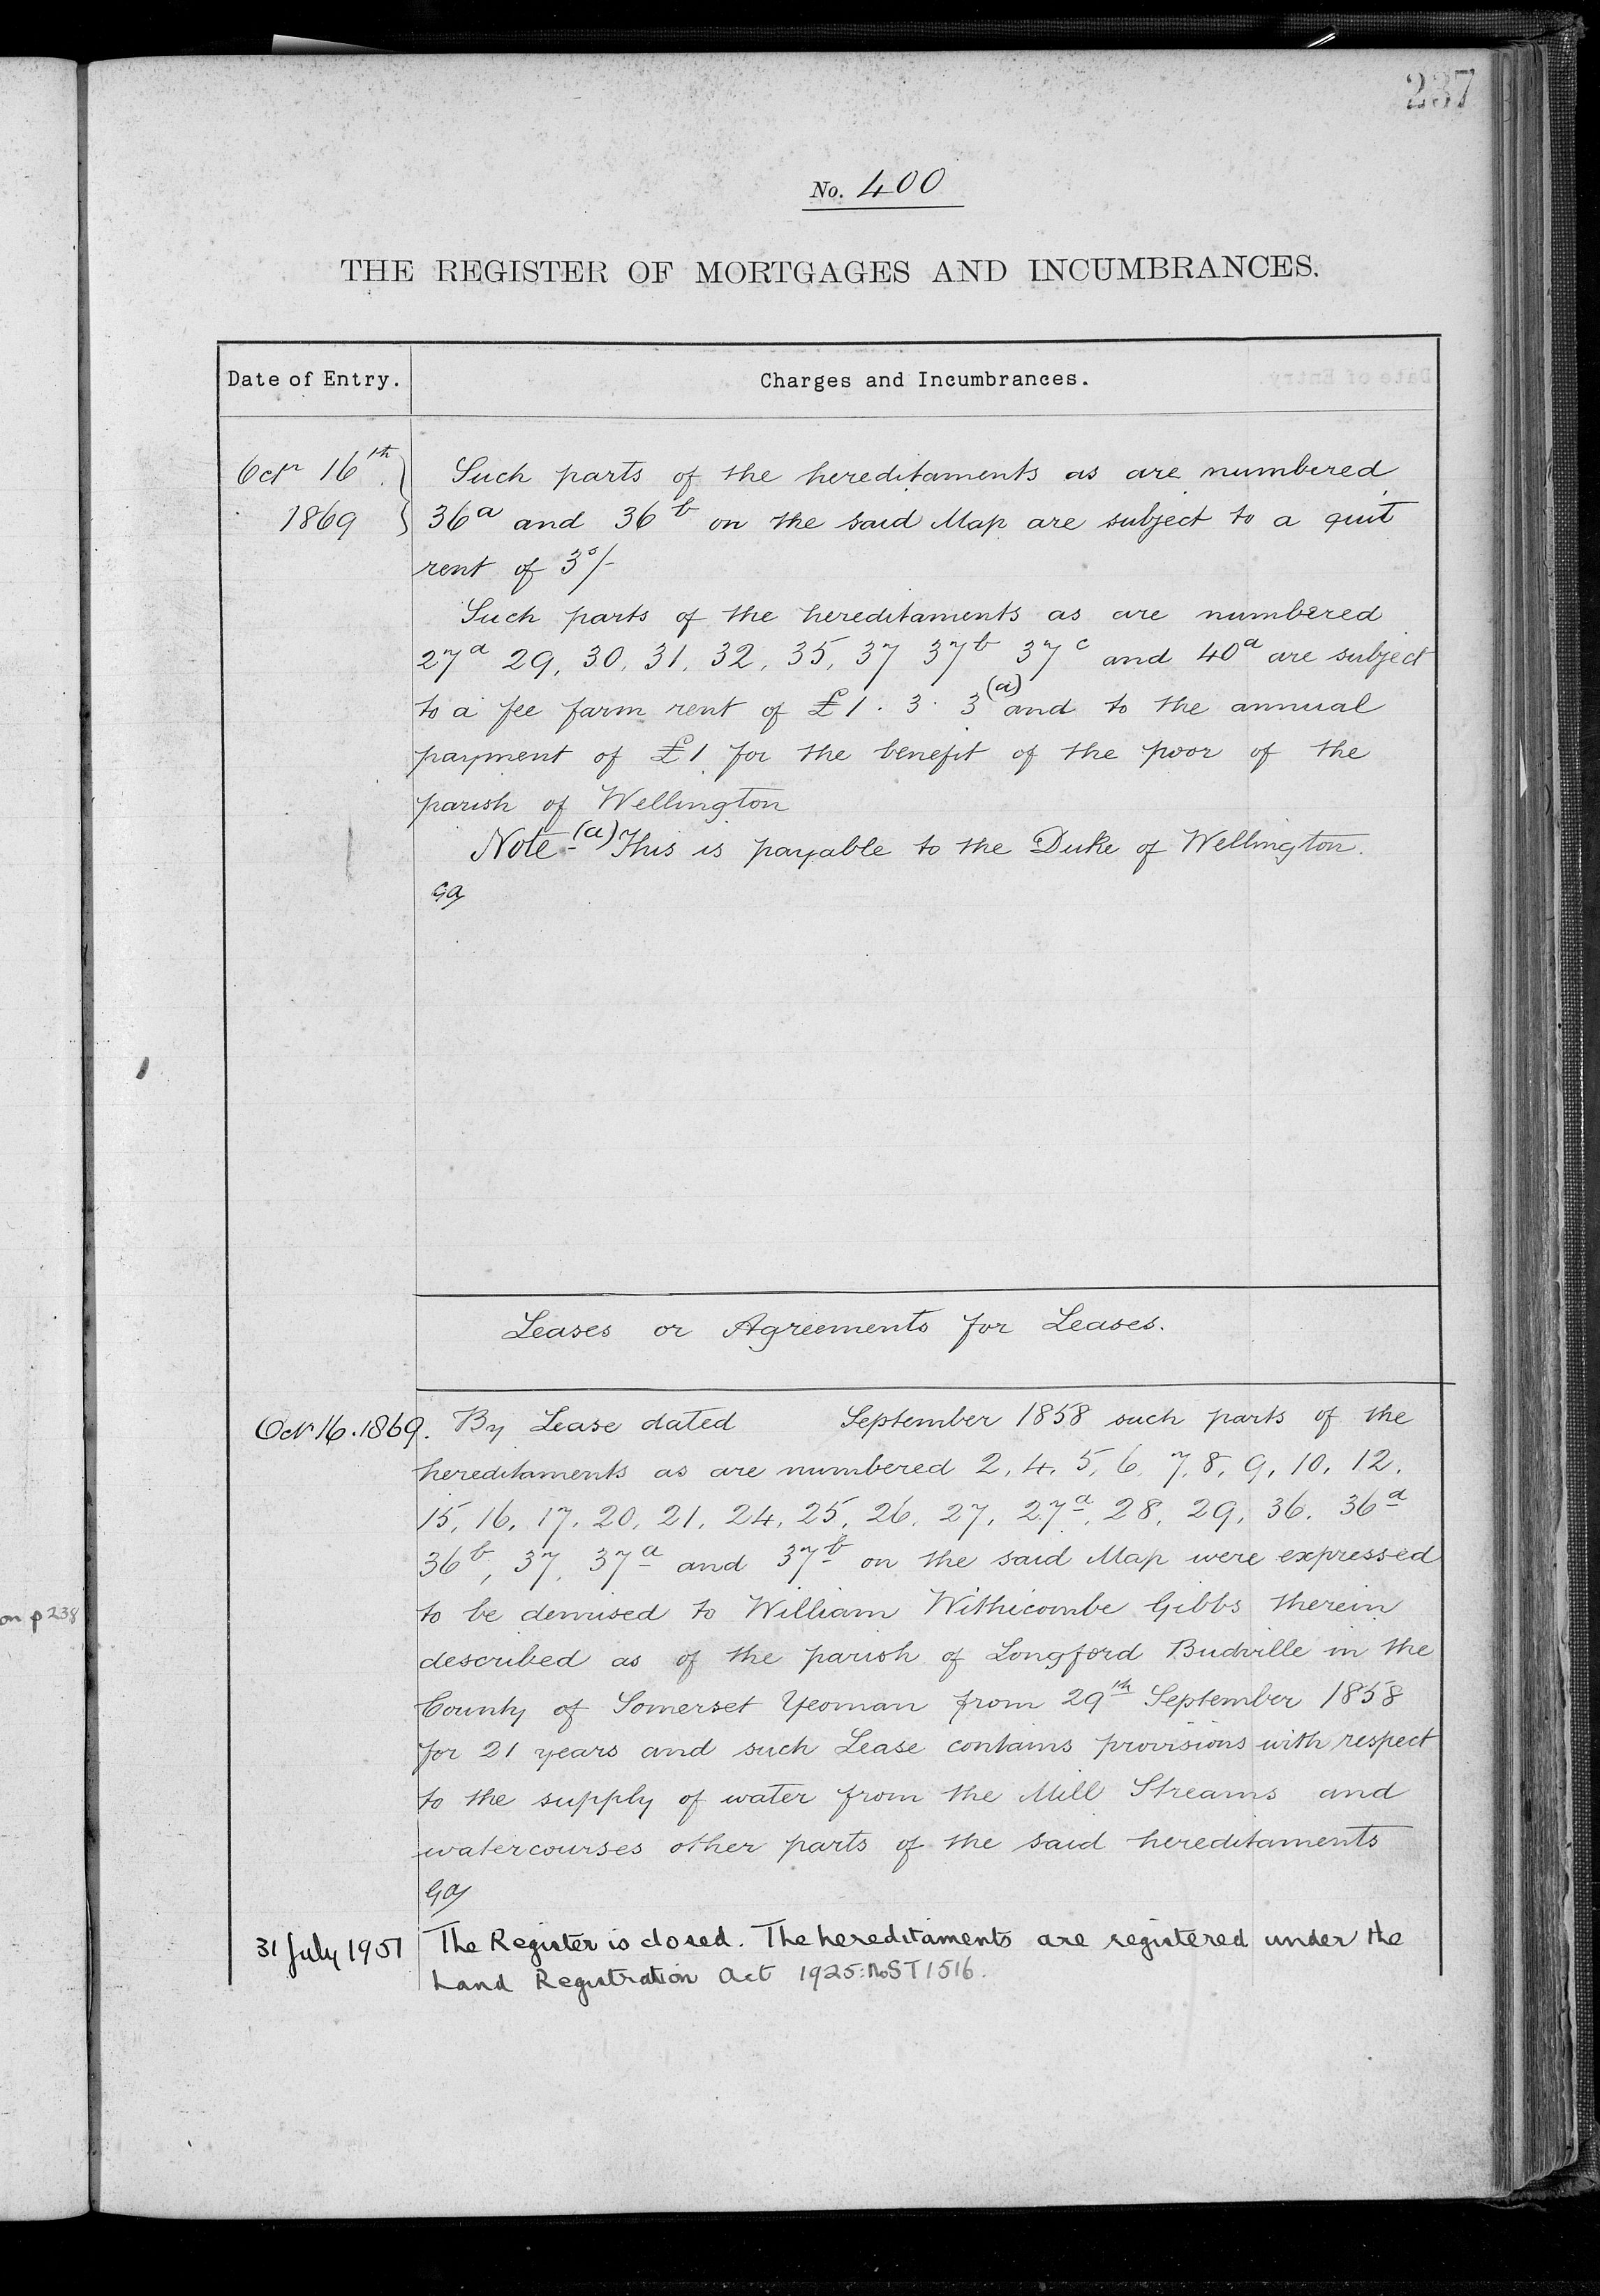 237
No. 400
THE REGISTER OF MORTGAGES AND INCUMBRANCES.
Date of Entry.
Charges and Incumbrances.
Octr 16th
1869
Such parts of the hereditaments as are numbered
36a and 36b on the said Map are subject to a quit
rent of 3s/-
Such parts of the hereditaments as are numbered
27a 29, 30, 31, 32, 35, 37 37b 37c and 40a are subject
to a fee farm rent of £1. 3. 3 (a) and to the annual
payment of £1 for the benefit of the poor of the
parish of Wellington
Note (a) This is payable to the Duke of Wellington.
Leases or Agreements for Leases.
Octr 16. 1869. By Lease dated September 1858 such parts of the
hereditaments as are numbered 2, 4, 5, 6, 7, 8, 9, 10, 12,
15, 16, 17, 20, 21, 24, 25, 26, 27, 27a, 28, 29, 36, 36a
36b, 37, 37a and 37b on the said Map were expressed
to be demised to William Withicombe Gibbs therein
on p 238
described as of the parish of Longford Budville in the
County of Somerset Yeoman from 29th September 1858
for 21 years and such Lease contains provisions with respect
to the supply of water from the Mill Streams and
watercourses other parts of the said hereditaments
31 July 1951 The Register is closed. The hereditaments are registered under the
Land Registration Act 1925: No ST1516.